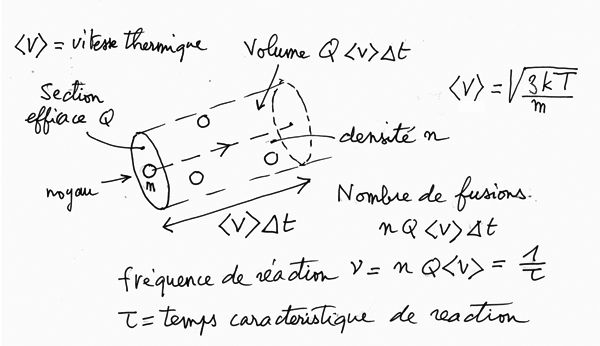 <V> = vitesse thermique
Volume Q <V> Δt
Section
efficace Q
<V> = √(3kT/m)
densité n
noyau
m
<V> Δt
Nombre de fusions.
n Q <V> Δt
fréquence de réaction ν = n Q <V> = 1/τ
τ = temps caracteristique de reaction